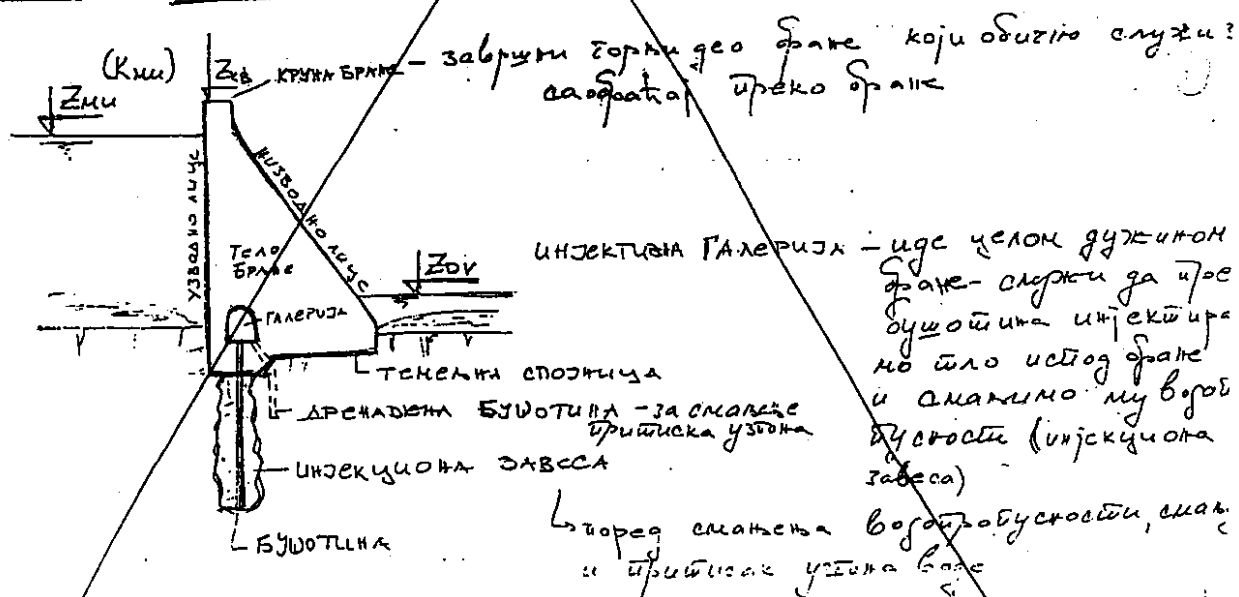 (Кми) Zкв КРУНА БРАНЕ – завршни горњи део бране који обично служи
Zми
саобраћај преко бране
УЗВОДНО ЛИЦЕ
НИЗВОДНО ЛИЦЕ
ТЕЛО
БРАНЕ
ZDV
ГАЛЕРИЈА
ИНЈЕКТИВНА ГАЛЕРИЈА – иде целом дужином
бране – служи да
бушотина
но тло испод бране
и смањимо му
(инјекциона
завеса)
ТЕМЕЉНА СПОЈНИЦА
ДРЕНАЖНА БУШОТИНА – за смањење
притиска узгона
ИНЈЕКЦИОНА ЗАВЕСА
БУШОТИНА
поред смањења водопропусности,
и притисак узгона воде